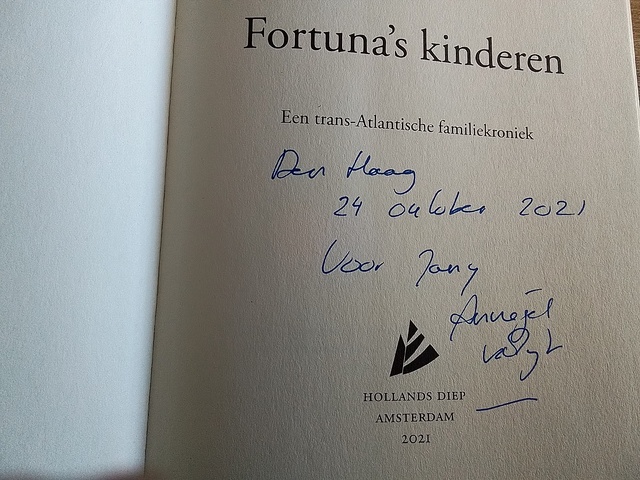 Fortuna's kinderen
Een trans-Atlantische familiekroniek
Den Haag
24 oktober 2021
Voor Jany
Annejet
vd Zijl
HOLLANDS DIEP
AMSTERDAM
2021